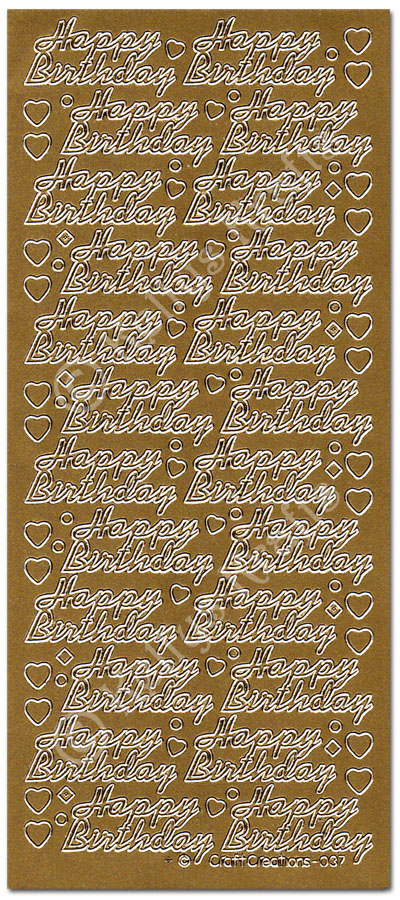 Happy Happy
Birthday Birthday
Happy Happy
Birthday Birthday
Happy Happy
Birthday Birthday
Happy Happy
Birthday Birthday
Happy Happy
Birthday Birthday
Happy Happy
Birthday Birthday
Happy Happy
Birthday Birthday
Happy Happy
Birthday Birthday
Happy Happy
Birthday Birthday
Happy Happy
Birthday Birthday
Happy Happy
Birthday Birthday
Happy Happy
Birthday Birthday
+ © Craft Creations - 037